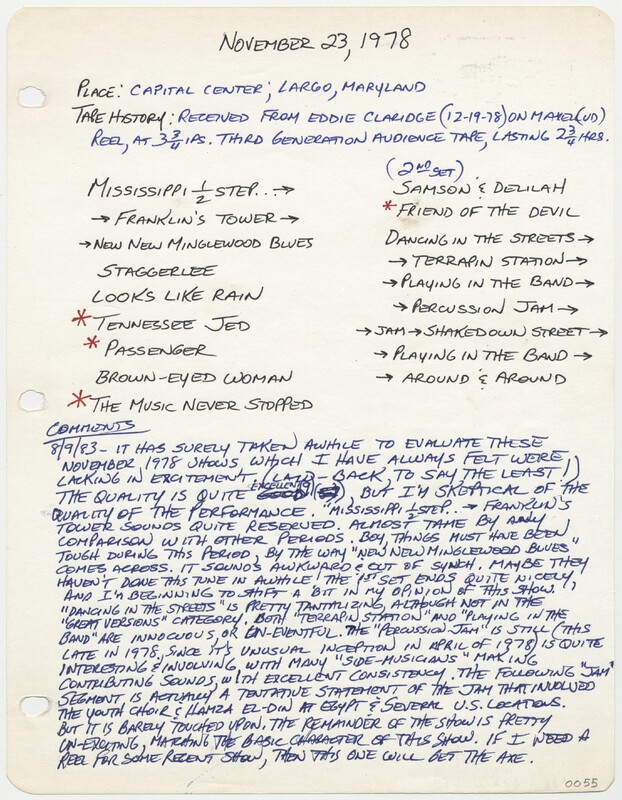 NOVEMBER 23, 1978
PLACE: CAPITAL CENTER; LARGO, MARYLAND
TAPE HISTORY: RECEIVED FROM EDDIE CLARIDGE (12-19-78) ON MAXELL (UD)
REEL, AT 3 3/4 IPS. THIRD GENERATION AUDIENCE TAPE, LASTING 2 3/4 HRS.
MISSISSIPPI 1/2 STEP... →
→ FRANKLIN'S TOWER →
→ NEW NEW MINGLEWOOD BLUES
STAGGERLEE
LOOKS LIKE RAIN
* TENNESSEE JED
* PASSENGER
BROWN-EYED WOMAN
* THE MUSIC NEVER STOPPED
(2ND SET)
SAMSON & DELILAH
* FRIEND OF THE DEVIL
DANCING IN THE STREETS →
→ TERRAPIN STATION →
→ PLAYING IN THE BAND →
→ PERCUSSION JAM →
→ JAM → SHAKEDOWN STREET →
→ PLAYING IN THE BAND →
→ AROUND & AROUND
COMMENTS
8/9/83 - IT HAS SURELY TAKEN AWHILE TO EVALUATE THESE
NOVEMBER 1978 SHOWS, WHICH I HAVE ALWAYS FELT WERE
LACKING IN EXCITEMENT (LAID-BACK, TO SAY THE LEAST!)
THE QUALITY IS QUITE EXCELLENT (9), BUT I'M SKEPTICAL OF THE
QUALITY OF THE PERFORMANCE. "MISSISSIPPI 1/2 STEP... → FRANKLIN'S
TOWER SOUNDS QUITE RESERVED. ALMOST TAME BY ANY
COMPARISON WITH OTHER PERIODS. BOY, THINGS MUST HAVE BEEN
TOUGH DURING THIS PERIOD, BY THE WAY "NEW NEW MINGLEWOOD BLUES"
COMES ACROSS. IT SOUNDS AWKWARD & OUT OF SYNCH. MAYBE THEY
HAVEN'T DONE THIS TUNE IN AWHILE. THE 1ST SET ENDS QUITE NICELY,
AND I'M BEGINNING TO SHIFT A BIT IN MY OPINION OF THIS SHOW.
"DANCING IN THE STREETS" IS PRETTY TANTALIZING, ALTHOUGH NOT IN THE
"GREAT VERSIONS" CATEGORY. BOTH "TERRAPIN STATION" AND "PLAYING IN THE
BAND" ARE INNOCUOUS, OR UN-EVENTFUL. THE "PERCUSSION JAM" IS STILL (THIS
LATE IN 1978, SINCE IT'S UNUSUAL INCEPTION IN APRIL OF 1978) IS QUITE
INTERESTING & INVOLVING, WITH MANY "SIDE-MUSICIANS" MAKING
CONTRIBUTING SOUNDS, WITH EXCELLENT CONSISTENCY. THE FOLLOWING "JAM"
SEGMENT IS ACTUALLY A TENTATIVE STATEMENT OF THE JAM THAT INVOLVED
THE YOUTH CHOIR & HAMZA EL-DIN AT EGYPT & SEVERAL U.S. LOCATIONS.
BUT IT IS BARELY TOUCHED UPON. THE REMAINDER OF THE SHOW IS PRETTY
UN-EXCITING, MATCHING THE BASIC CHARACTER OF THIS SHOW. IF I NEED A
REEL FOR SOME RECENT SHOW, THEN THIS ONE WILL GET THE AXE.
0055